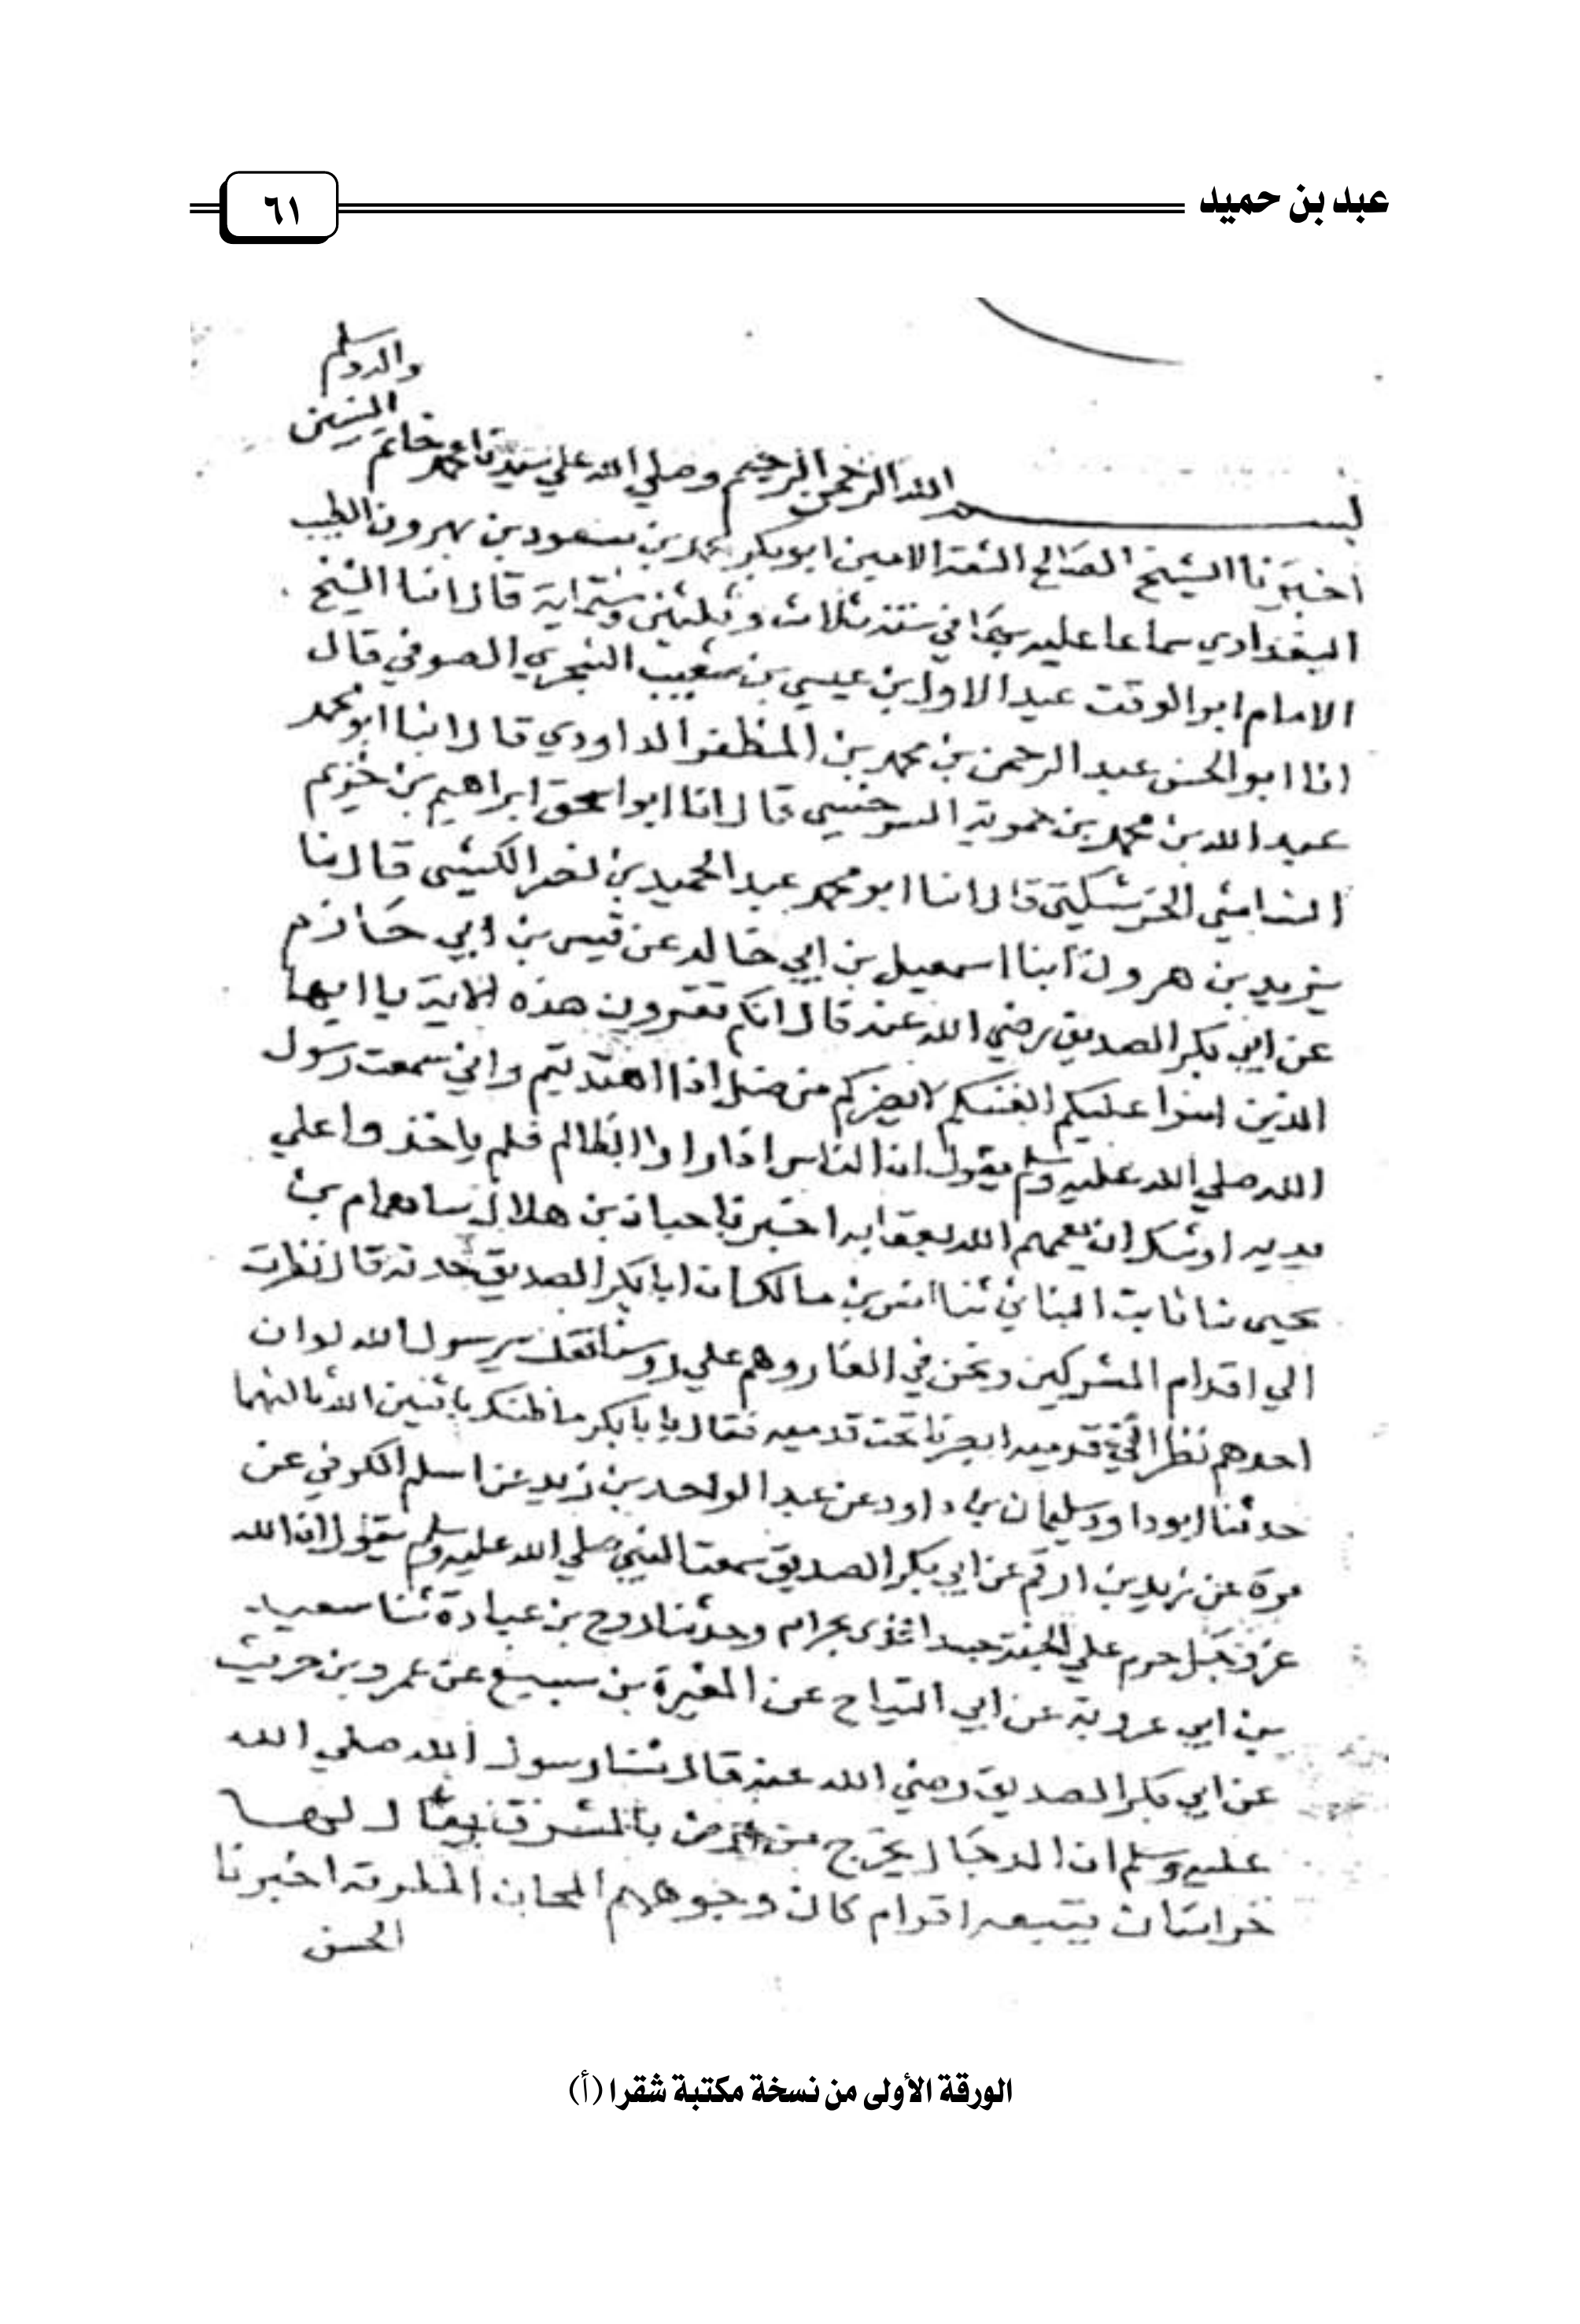 عبد بن حميد
٦١
بسم الله الرحمن الرحيم وصلي الله علي سيدنا محمد خاتم النبيين
واله وسلم
اخبرنا الشيخ الصالح الثقة الامين ابو بكر محمد بن مسعود بن بهرون الطبيب
البغدادي سماعا عليه في سنة ثلاث وثلثين وستماية قال انا الشيخ
الامام ابو الوقت عبد الاول بن عيسي بن شعيب السجزي الصوفي قال
انا ابو الحسن عبد الرحمن بن محمد بن المظفر الداودي قال انبا ابو محمد
عبد الله بن محمد بن حموية السرخسي قال انا ابو اسحق ابراهيم بن خزيم
الشاشي قال انبا ابو محمد عبد الحميد بن الكشي قال نا
يزيد بن هرون انبا اسمعيل بن ابي خالد عن قيس بن ابي حازم
عن ابي بكر الصديق رضي الله عنه قال انكم تقرون هذه الاية يا ايها
الذين امنوا عليكم انفسكم لا يضركم من ضل اذا اهتديتم واني سمعت رسول
الله صلي الله عليه وسلم يقول ان الناس اذا راوا الظالم فلم ياخذوا علي
يديه اوشك ان يعمهم الله بعقابه اخبرنا حبان بن هلال نا همام بن
يحيى نا ثابت البناني ثنا انس بن مالك ان ابا بكر الصديق حدثه قال نظرت
الي اقدام المشركين ونحن في الغار وهم علي روسنا فقلت يرسول الله لو ان
احدهم نظر الي قدميه ابصرنا تحت قدميه فقال يا با بكر ما ظنك باثنين الله ثالثهما
حدثنا ابو داود سليمان بن داود عن عبد الواحد بن زيد عن اسلم الكوفي عن
مرة عن زيد بن ارقم عن ابي بكر الصديق سمعت النبي صلي الله عليه وسلم يقول ان الله
عز وجل حرم علي الجنة جسدا غذى بحرام وحدثنا روح بن عبادة ثنا سعيد
بن ابي عروبة عن ابي التياح عن المغيرة بن سبيع عن عمرو بن حريث
عن ابي بكر الصديق رضي الله عنه قال ثنا رسول الله صلي الله
عليه وسلم ان الدجال يخرج من ارض بالمشرق يقال لها
خراسان يتبعه اقوام كان وجوههم المجان المطرقة اخبرنا
الحسن
الورقة الأولى من نسخة مكتبة شقرا (أ)